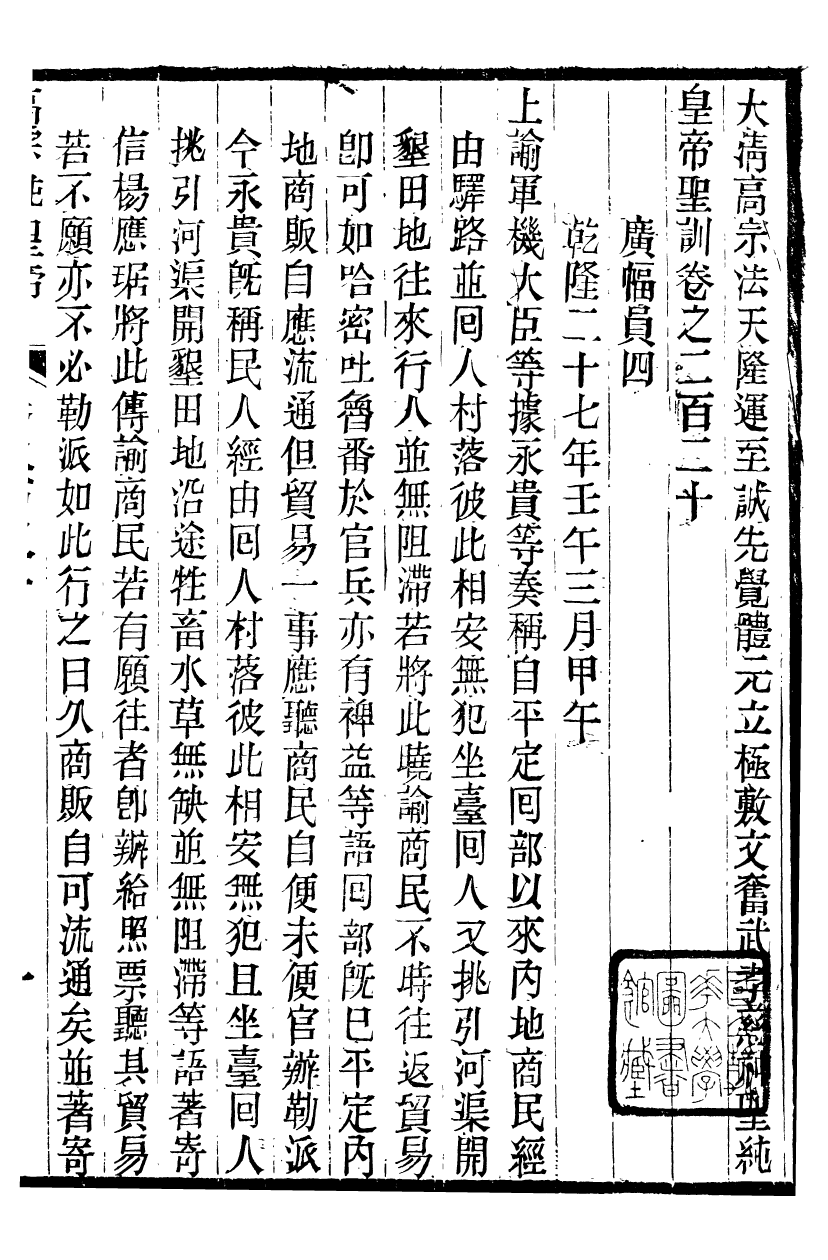 大淸高宗法天隆運至誠先覺體元立極敷文奮武孝慈神聖純
皇帝聖訓卷之二百二十
廣幅員四
乾隆二十七年壬午三月甲午
上諭軍機大臣等據永貴等奏稱自平定囘部以來內地商民經
由驛路並囘人村落彼此相安無犯坐臺囘人又挑引河渠開
墾田地往來行人並無阻滯若將此曉諭商民不時往返貿易
卽可如哈密吐魯番於官兵亦有裨益等語囘部旣已平定內
地商販自應流通但貿易一事應聽商民自便未便官辦勒派
今永貴旣稱民人經由囘人村落彼此相安無犯且坐臺囘人
挑引河渠開墾田地沿途牲畜水草無缺並無阻滯等語著寄
信楊應琚將此傳諭商民若有願往者卽辦給照票聽其貿易
若不願亦不必勒派如此行之日久商販自可流通矣並著寄
大學
圖書
館藏